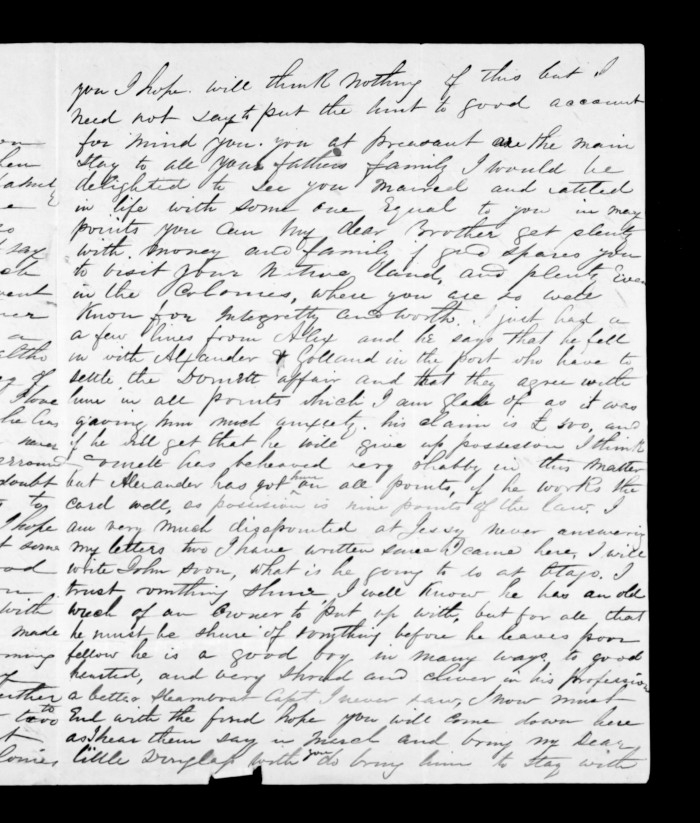 you I hope. will think nothing of this but I
need not say to put the hint to good account
for mind you. you at preasant are the main
stay to all your fathers family I would be
delighted to see you married and
in life with some one Equal to you in many
points you can my dear Brother get plenty
with money and family if god spares you
to visit your Native land, and plenty Even
in the Colonies, where you are so well
Know for Integretty and worth. I just had a
a few lines from Alex and he says that he fell
in with Alexander & Golland in the Port who have to
settle the Domett affair and that they agree with
him in all points which I am glade of as it was
giaving him much anxiety. his claim is £ 500, and
if he Will get that he will give up possession I think
has behaved very shabby in this Matter
but Alexander has got him on all points, if he works the
card well, as possision is nine points of the law. I
am very much disapointed at Jessy never answering
my letters two I have written since I came here, I will
write John soon, what is he going to do at Otago. I
trust somthing I well Know he has an old
of an Owner to put up with, but for all that
he must be shure of somthing before he leaves poor
fellow he is a good boy in many ways, to good
hearted, and very shrud and cliver in his profession
a better Steamboat Capt I never saw, I now must
End with the fond hope you will come down here
as I hear them say in March and bring my dear
little with you do bring him to stay with
on
hen
say
sh
ent
ner
a
altho
of
I love
he has
never
arround
doubt
to
I hope
t some
od
with
made
ming
either
to
too
t
olonies